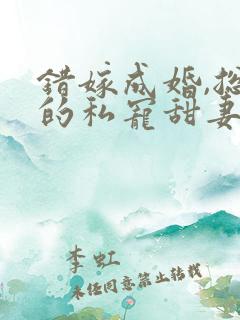 错嫁成婚,总
的私宠甜妻
李虹
未经同意禁止转载